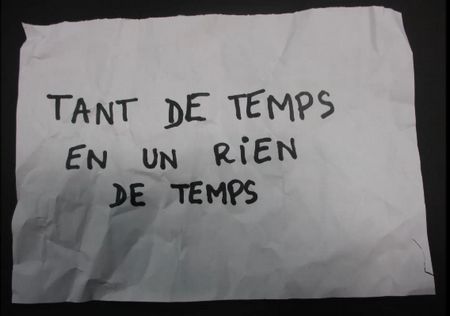 TANT DE TEMPS
EN UN RIEN
DE TEMPS